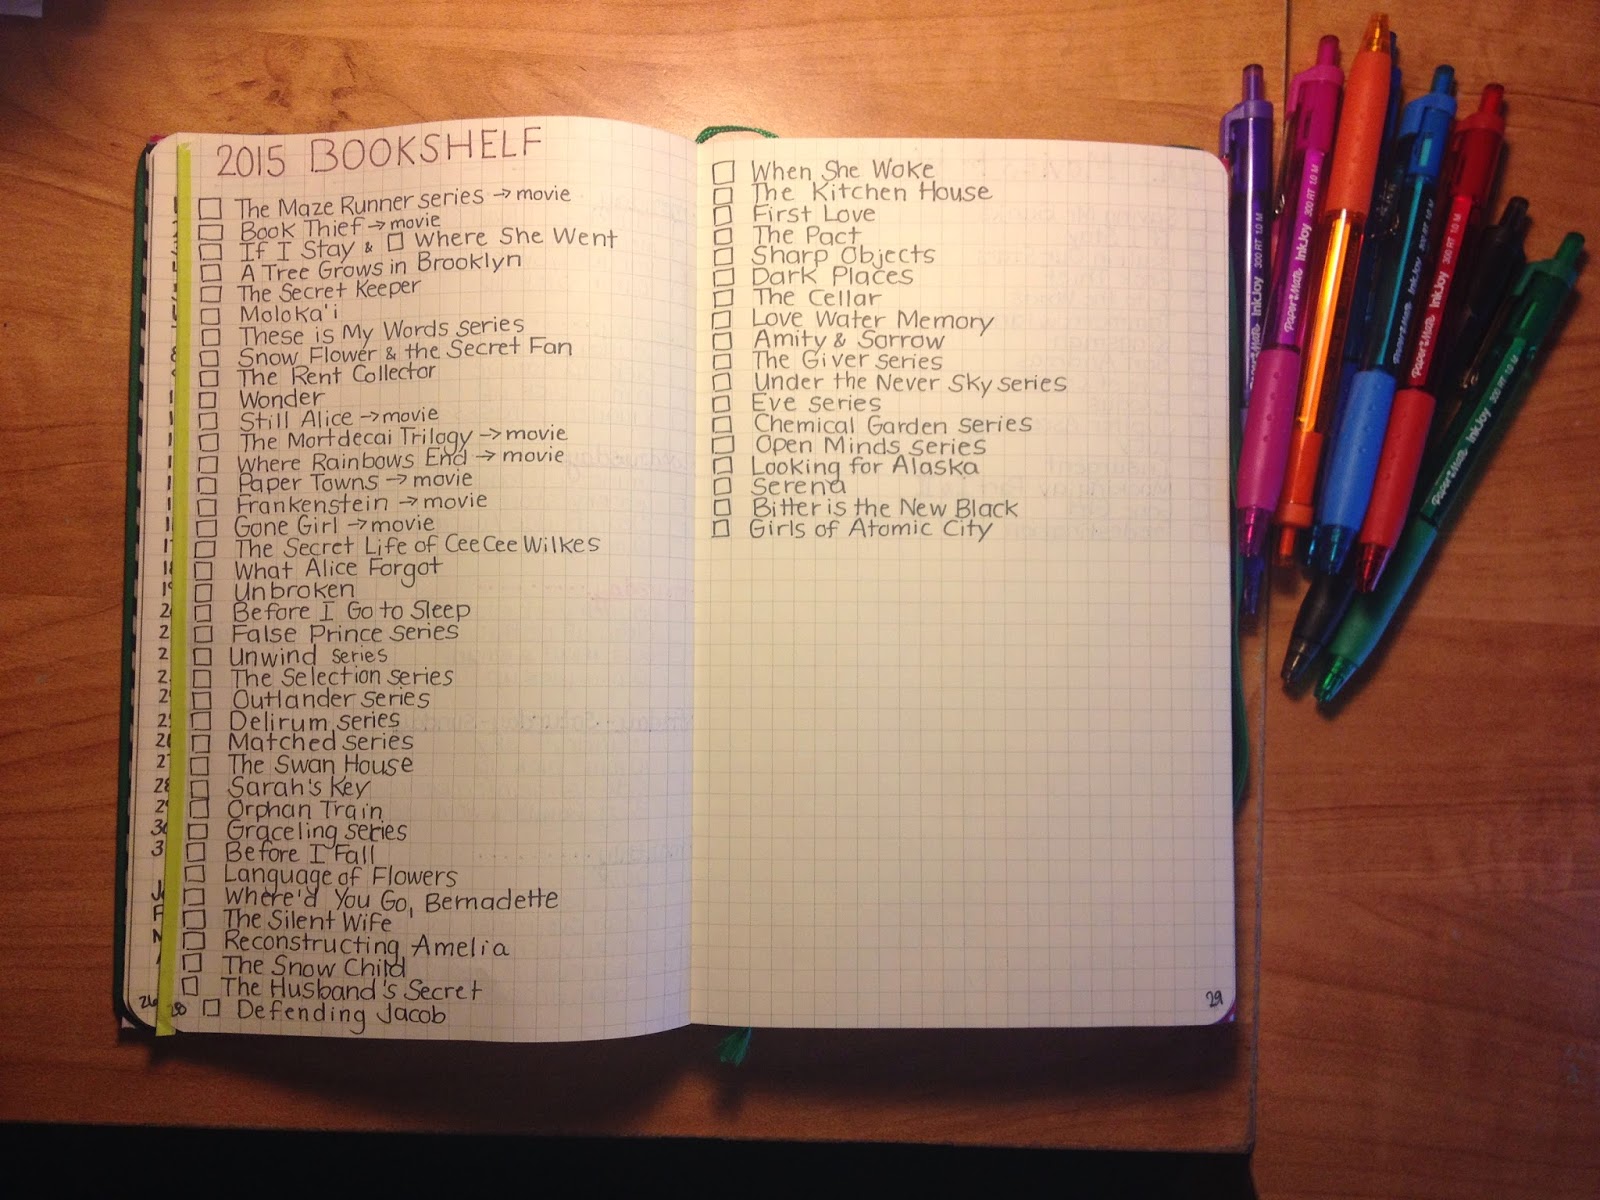 2015 BOOKSHELF
The Maze Runner series → movie
Book Thief → movie
If I Stay & □ Where She Went
A Tree Grows in Brooklyn
The Secret Keeper
Moloka'i
These is My Words series
Snow Flower & the Secret Fan
The Rent Collector
Wonder
Still Alice → movie
The Mortdecai Trilogy → movie
Where Rainbows End → movie
Paper Towns → movie
Frankenstein → movie
Gone Girl → movie
The Secret Life of CeeCee Wilkes
What Alice Forgot
Unbroken
Before I Go to Sleep
False Prince series
Unwind series
The Selection series
Outlander series
Delirum series
Matched series
The Swan House
Sarah's Key
Orphan Train
Graceling series
Before I Fall
Language of Flowers
Where'd You Go, Bernadette
The Silent Wife
Reconstructing Amelia
The Snow Child
The Husband's Secret
Defending Jacob
26
28
When She Woke
The Kitchen House
First Love
The Pact
Sharp Objects
Dark Places
The Cellar
Love Water Memory
Amity & Sorrow
The Giver series
Under the Never Sky series
Eve series
Chemical Garden series
Open Minds series
Looking for Alaska
Serena
Bitter is the New Black
Girls of Atomic City
29
Paper Mate InkJoy 300 RT 1.0 M
Paper Mate InkJoy 300 RT 1.0 M
Paper Mate InkJoy 300 RT 1.0 M
Paper Mate InkJoy 300 RT 1.0 M
Paper Mate InkJoy 300 RT 1.0 M